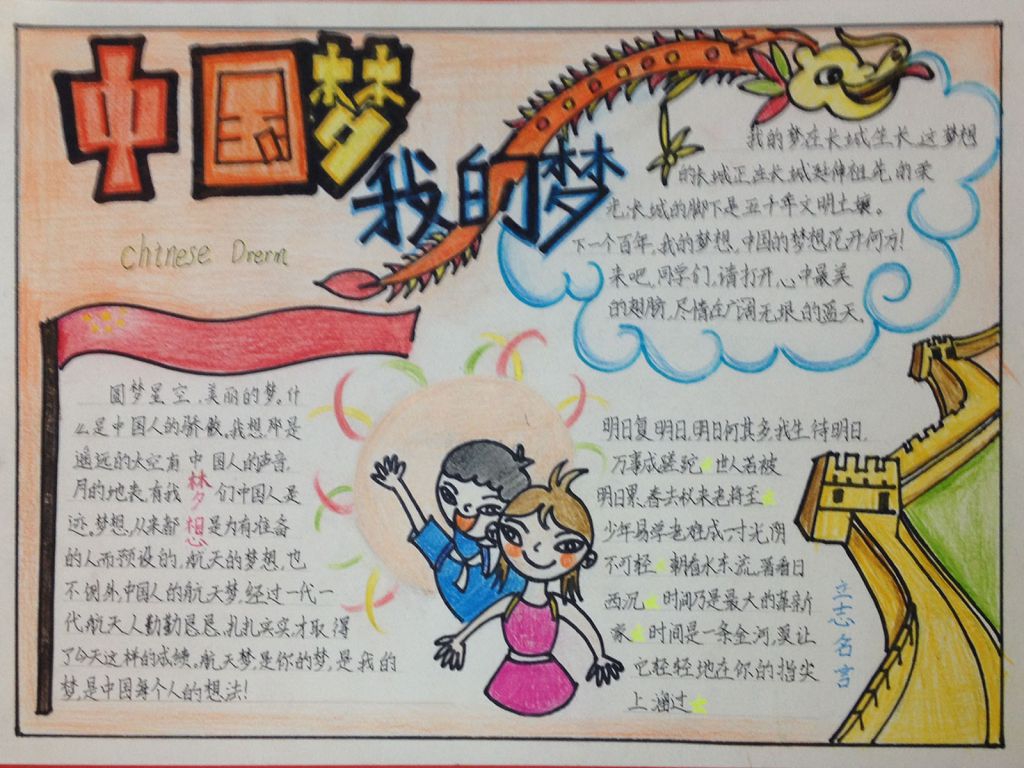 中国梦
我的梦
Chinese Drerm
我的梦在长城生长,这梦想
的长城正在长城延伸祖先的荣
光,长城的脚下是五千年文明土壤。
下一个百年,我的梦想,中国的梦想花开何方!
来吧,同学们,请打开心中最美
的翅膀,尽情在广阔无垠的蓝天。
圆梦星空,美丽的梦。什
么是中国人的骄傲,我想那是
遥远的太空有中国人的声音,
月的地表有我们中国人足
迹。梦想,从来都是为有准备
的人而预设的,航天的梦想,也
不例外,中国人的航天梦,经过一代一
代航天人勤勤恳恳,扎扎实实才取得
了今天这样的成绩。航天梦,是你的梦,是我的
梦,是中国每个人的想法!
梦想
明日复明日,明日何其多,我生待明日,
万事成蹉跎 世人若被
明日累,春去秋来老将至
少年易学老难成,一寸光阴
不可轻 朝看水东流,暮看日
西沉 时间乃是最大的革新
家 时间是一条金河,莫让
它轻轻地在你的指尖
上溜过
立志名言